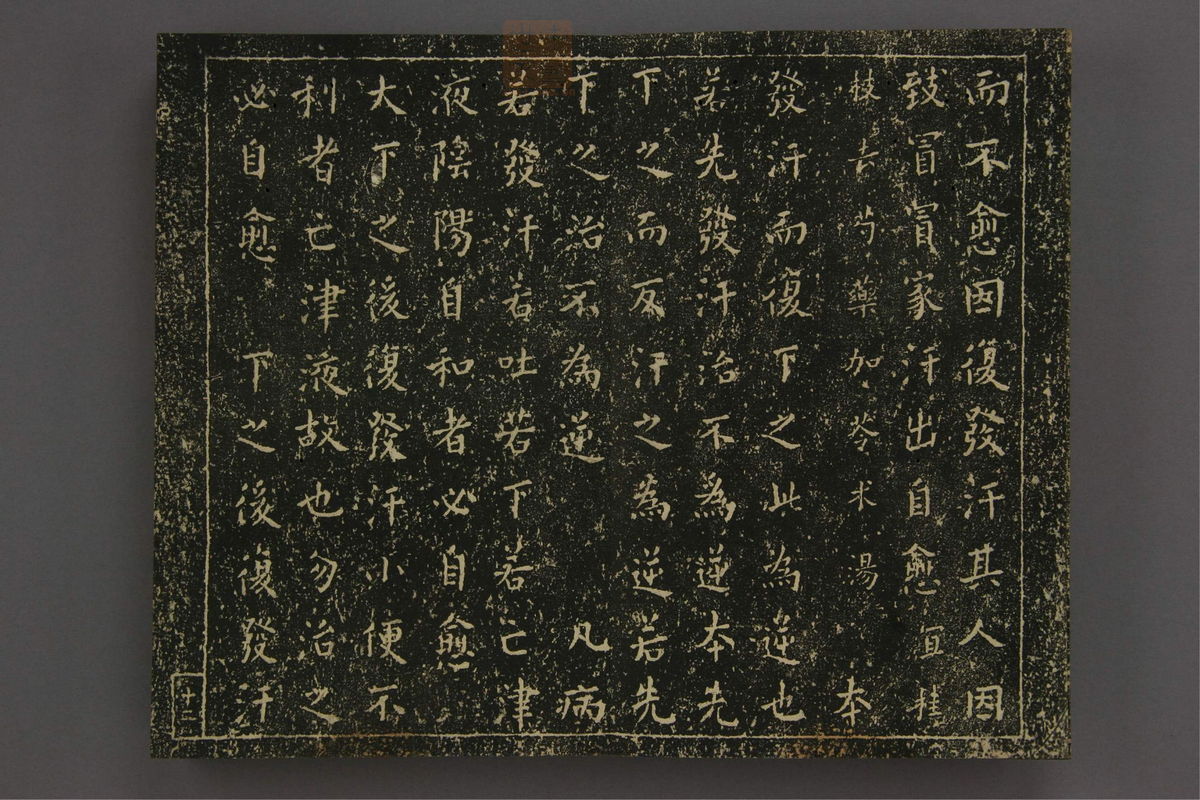 而不愈因復發汗其人因
致冒冒家汗出自愈宜桂
枝去芍藥加苓朮湯 本
發汗而復下之此為逆也
若先發汗治不為逆本先
下之而反汗之為逆若先
下之治不為逆 凡病
若發汗若吐若下若亡津
液陰陽自和者必自愈
大下之後復發汗小便不
利者亡津液故也勿治之
必自愈 下之後復發汗
十二